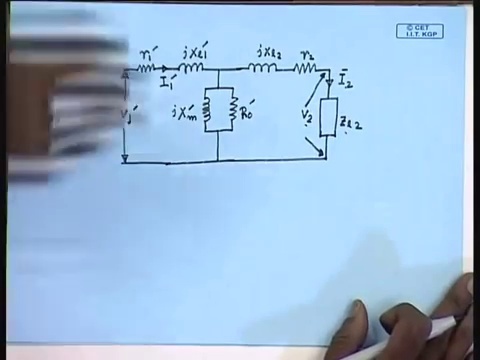 © CET
I.I.T. KGP
r₁′ jxₗ₁′ jxₗ₂ r₂
I₁′ Ī₂
V₁′ jXm′ R₀′ V₂ Zₗ₂